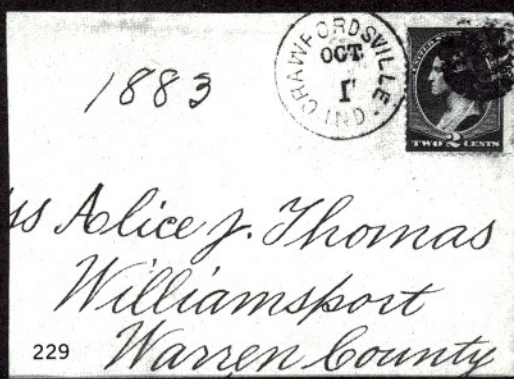 CRAWFORDSVILLE.
OCT
1
IND.
TWO 2 CENTS
1883
ss Alice J. Thomas
Williamsport
229 Warren County